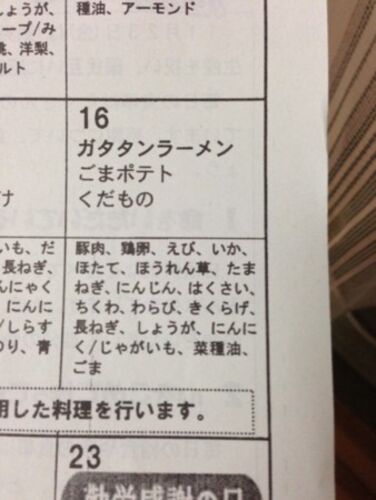 しょうが、
種油、アーモンド
ープ/み
桃、洋梨、
ルト
16
ガタタンラーメン
ごまポテト
くだもの
け
いも、だ
長ねぎ、
んにゃく
にんに
/しらす
のり、青
豚肉、鶏卵、えび、いか、
ほたて、ほうれん草、たま
ねぎ、にんじん、はくさい、
ちくわ、わらび、きくらげ、
長ねぎ、しょうが、にんに
く/じゃがいも、菜種油、
ごま
用した料理を行います。
23
勤労感謝の日